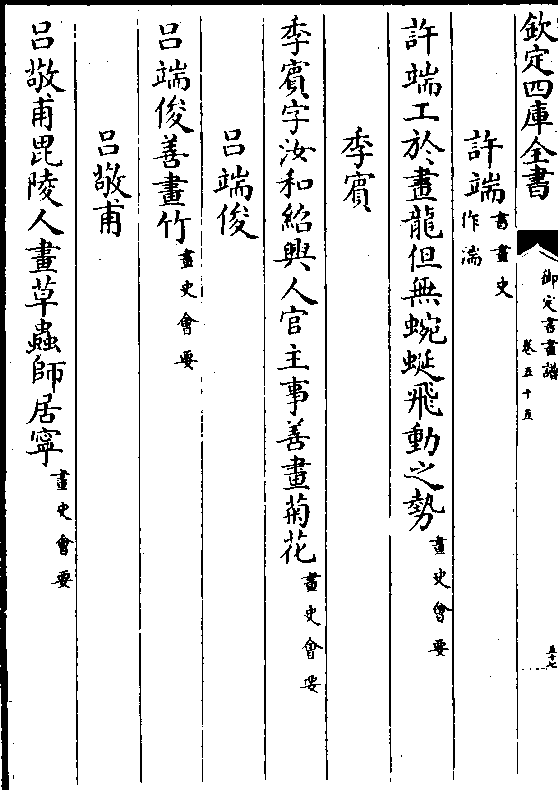 欽定四庫全書
御定書畫譜
卷五十五
五十七
許端書畫史作湍
許端工於畫龍但無蜿蜒飛動之勢畫史會要
季賓
季賓字汝和紹興人官主事善畫菊花畫史會要
呂端俊
呂端俊善畫竹畫史會要
呂敬甫
呂敬甫毘陵人畫草蟲師居寧畫史會要